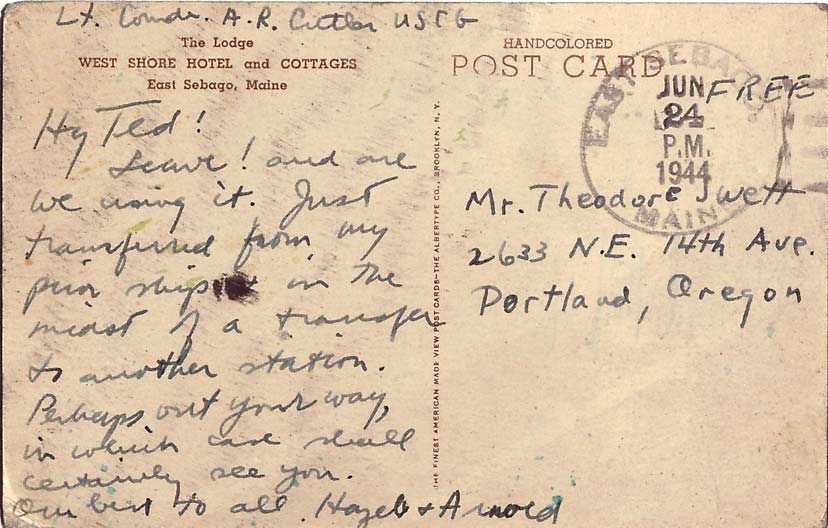 Lt. Comdr. A.R. Cutler USCG
The Lodge
WEST SHORE HOTEL and COTTAGES
East Sebago, Maine
Hy Ted!
Leave! and are
we using it. Just
transferred from my
prior ship & in the
midst of a transfer
to another station.
Perhaps out your way,
in which case shall
certainly see you.
Our best to all. Hazel & Arnold
THE FINEST AMERICAN MADE VIEW POST CARDS—THE ALBERTYPE CO., BROOKLYN, N. Y.
HANDCOLORED
POST CARD
FREE
EAST SEBAGO
JUN
24
P.M.
1944
MAINE
Mr. Theodore Swett
2633 N.E. 14th Ave.
Portland, Oregon